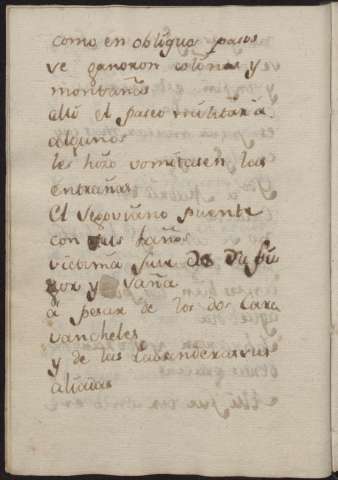 como en obliguo pasos
ve ganoron colinas y
montañas
alli el paseo militar a
algunos
les hizo vomitasen las
entrañas
El Segoviano puente
con sus baños
victima fue de su fu
ror y saña
a pesar de los dos Cara
vancheles
y de las labanderas sus
aliadas